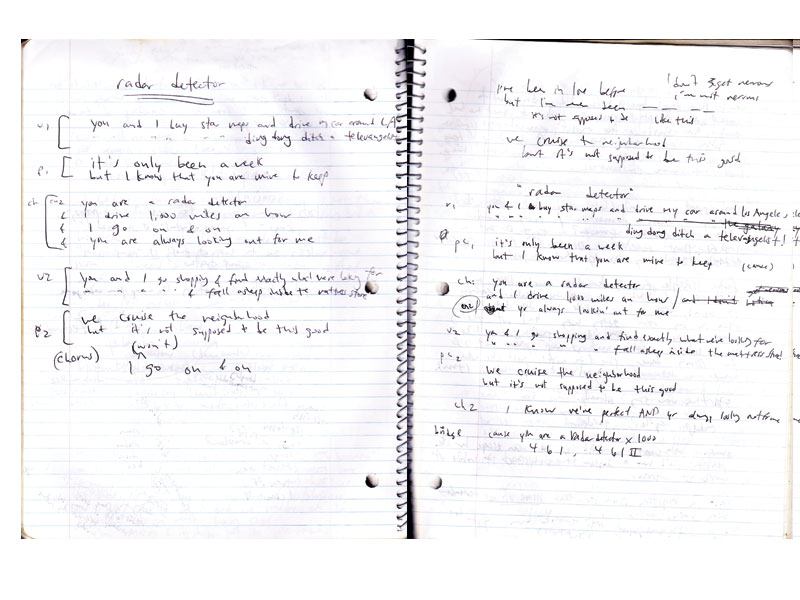 radar detector
v1 you and I buy star maps and drive my car around L.A.
" " " " ding dong ditch a televangelist
p1 it's only been a week
but I know that you are mine to keep
ch you are a radar detector
& I drive 1,000 miles an hour
& I go on & on
& you are always looking out for me
v2 you and I go shopping & find exactly what we're looking for
" " " " & fall asleep inside the mattress store
p2 we cruise the neighborhood
but it's not supposed to be this good
(chorus) (won't)
I go on & on
I've been in love before
but I've never been __ __ __
it's not supposed to be like this
I don't get nervous
i'm not nervous
we cruise the neighborhood
but it's not supposed to be this good
"radar detector"
v1 you & I buy star maps and drive my car around Los Angeles
" " " " ding dong ditch a televangelist
pc1 it's only been a week
but I know that you are mine to keep (cause)
ch: you are a radar detector
and I drive 1,000 miles an hour / and
yr always lookin' out for me
v2 you & I go shopping and find exactly what we're looking for
" " " " fall asleep inside the mattress store
pc2
we cruise the neighborhood
but it's not supposed to be this good
ch2 I know we're perfect AND yr always looking out for me
bridge cause you are a radar detector x 1000
4 6 1, 4 6 1 II